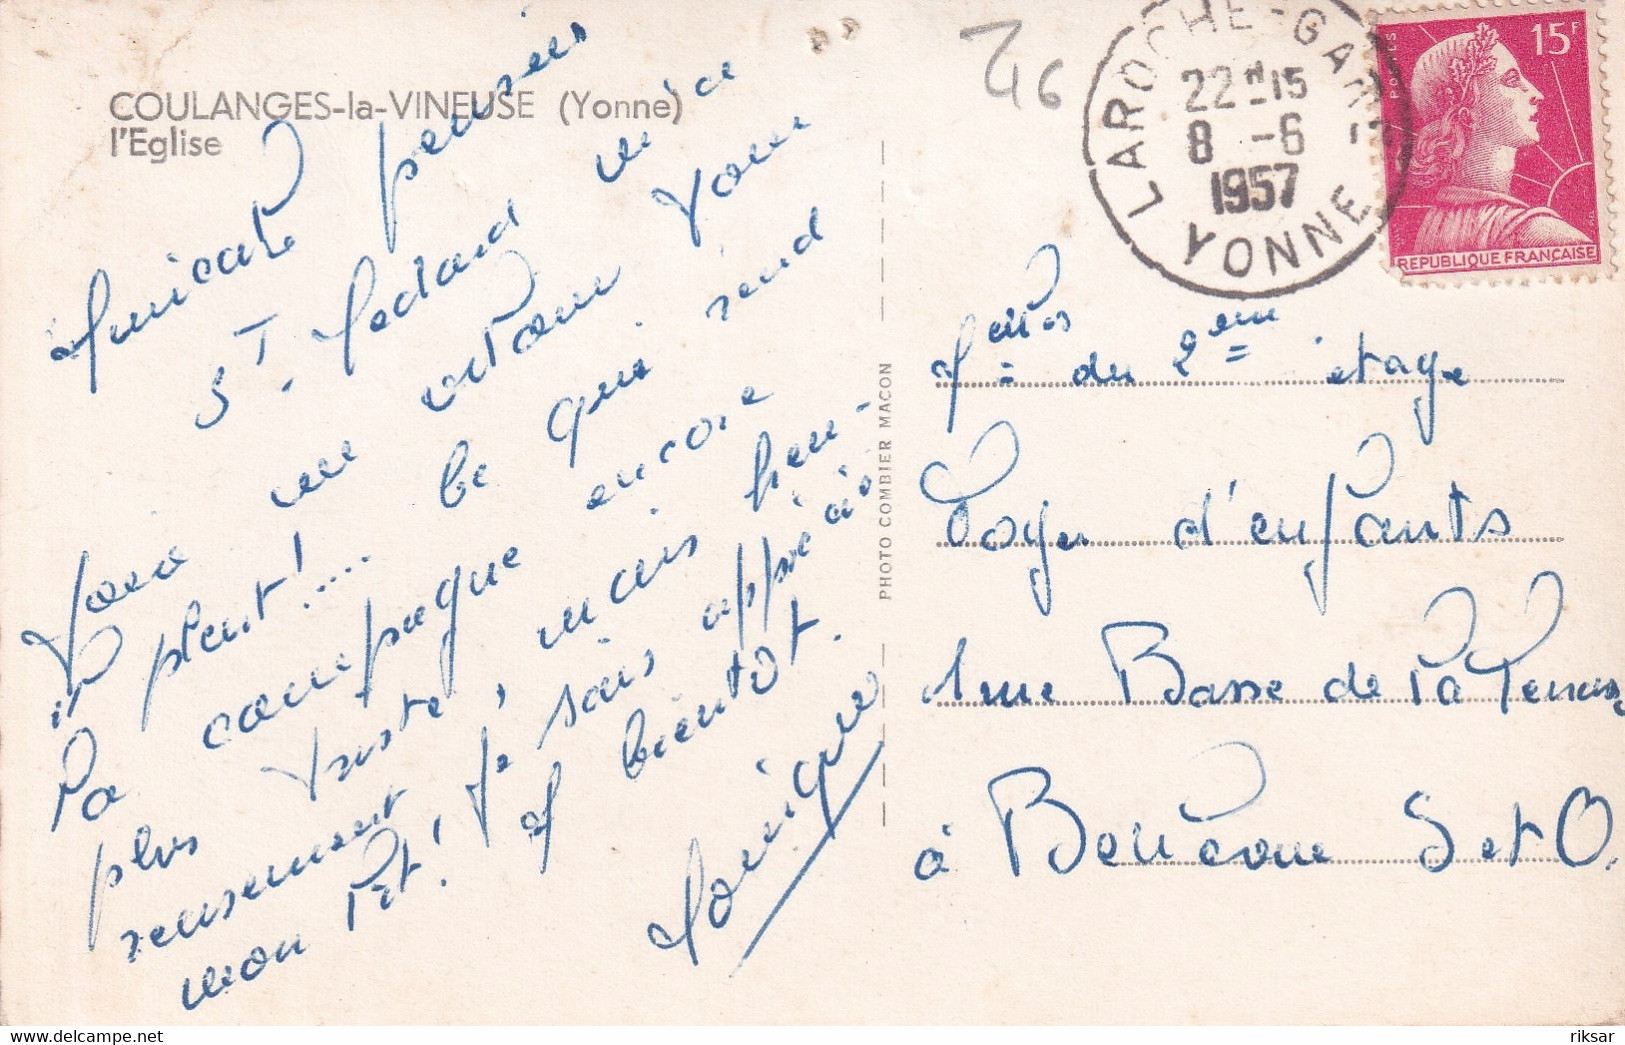 COULANGES-la-VINEUSE (Yonne)
l'Eglise
Amicale pensées
St. Médard
vous
il pleut!....
ce qui rend
la campagne encore
plus triste, mais heu-
reusement je suis apprécié
mon lit! à bientôt.
Monique
PHOTO COMBIER MACON
46
LAROCHE-GARE
22H15
8 -6
1957
YONNE
POSTES
15F
REPUBLIQUE FRANÇAISE
du 2eme étage
Foyer d'enfants
Basse de la Terrasse
à Bellevue S et O.
riksar